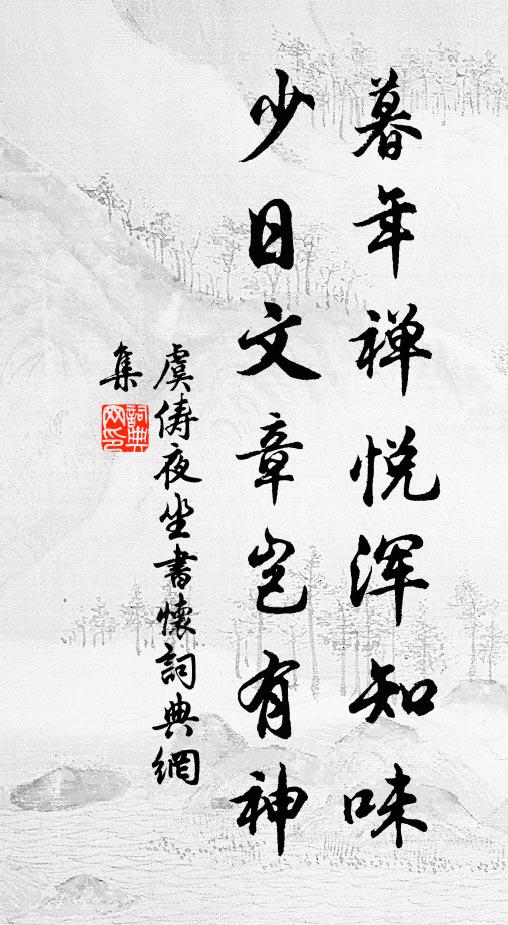 暮年禅悦浑知味
少日文章岂有神
虞俦夜坐書懷詞典網
集
詞典网印